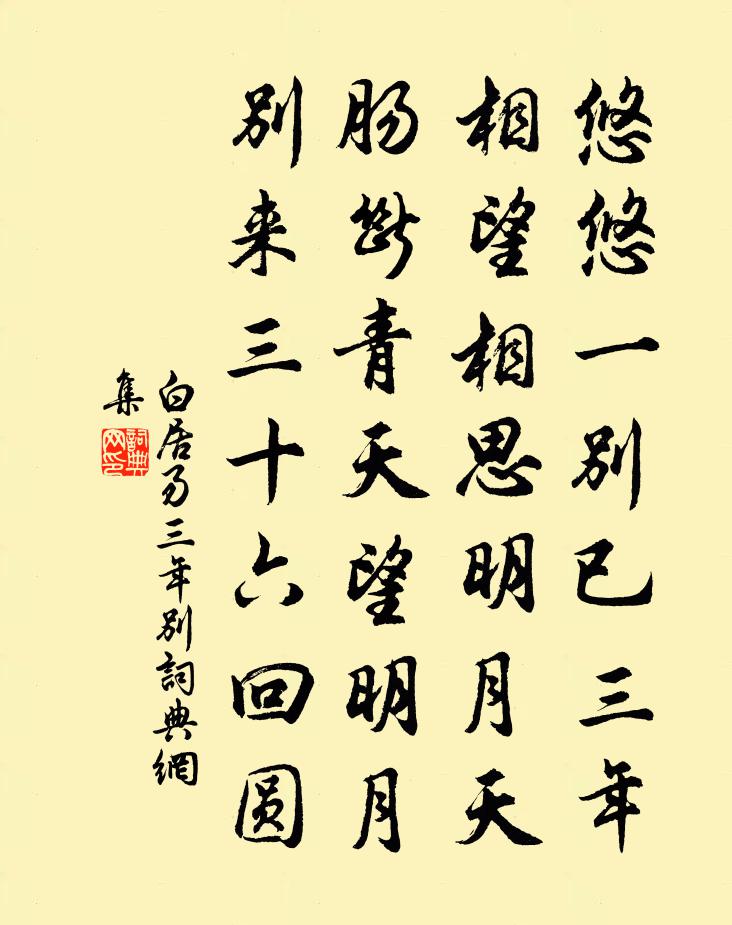 悠悠一别已三年
相望相思明月天
肠断青天望明月
别来三十六回圆
白居易三年别詞典網
集
詞典
网印